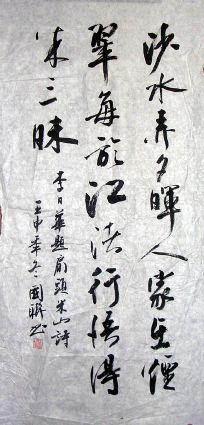 沙水弄夕暉人家在
翠每於江渚行悟得
米三昧
李日華題扇頭米山詩
壬申年冬國聯书